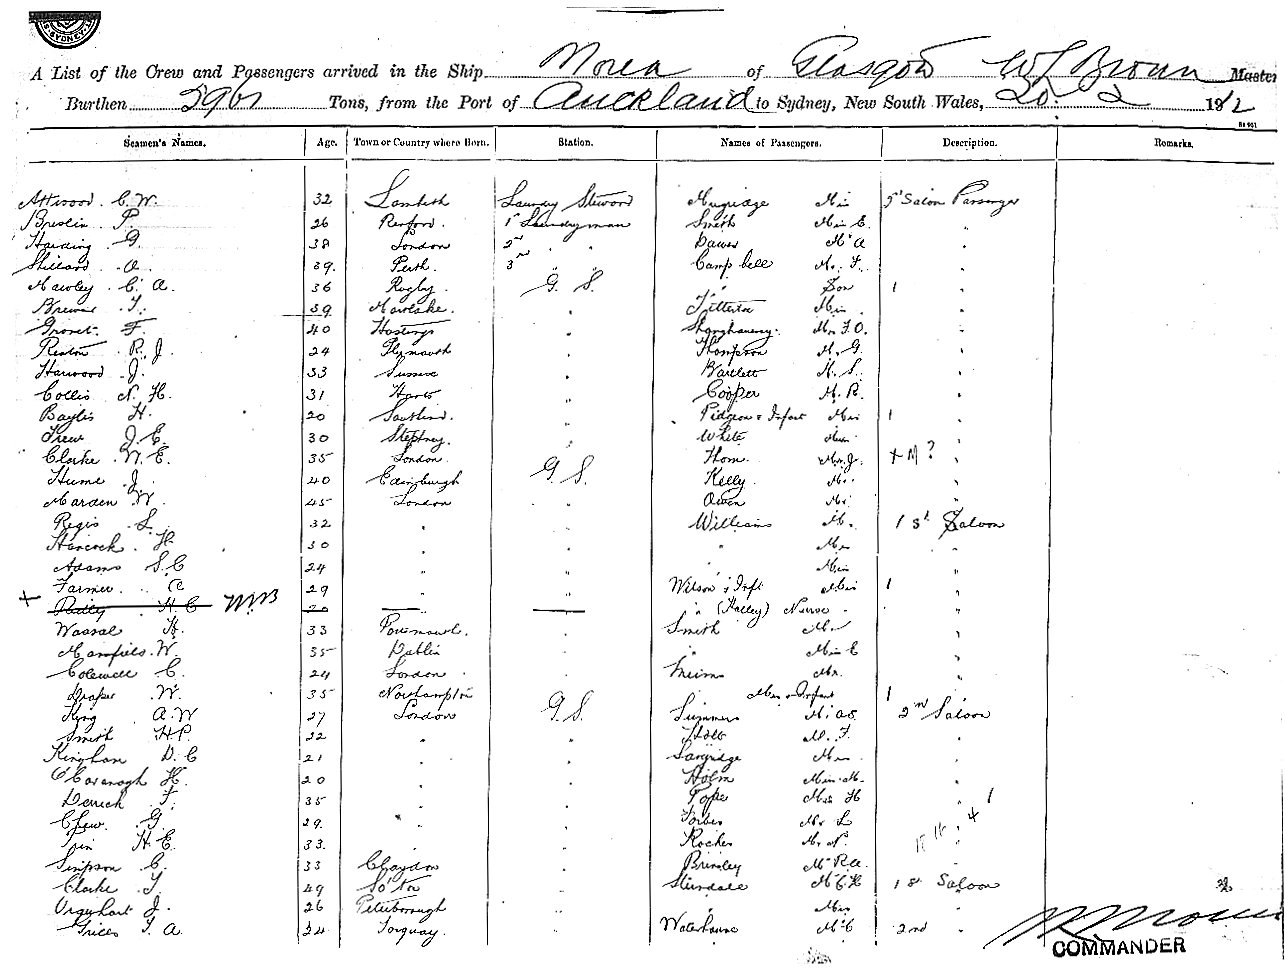 SYDNEY
A List of the Crew and Passengers arrived in the Ship Morea of Glasgow W L Brown Master
Burthen 5961 Tons, from the Port of Auckland to Sydney, New South Wales, 20. 2 1912
Seamen's Names. Age. Town or Country where Born. Station. Names of Passengers. Description. Remarks.
Attwood C. W. 32 Lambeth Laundry Steward Mugridge Miss Saloon Passenger
Breslin P. 26 Romford. 1st Laundryman Smith Miss E.
Harding G. 38 London 2nd " " Dawes Mr A
A. 39. Perth. 3rd " " Campbell Mr. F.
Mawley C. A. 36 Rugby. G. S. " Son 1
Brewer T. 39 Mortlake. " Titterton Miss
F. 40 Hastings " Mr F. O.
Renton R. J. 24 Plymouth " Thompson M. G.
Harwood J. 33 Sussex " Bartlett S.
Collis N. H. 31 Herts " Cooper M. R.
Baylis H. 20 Southend. " Pidgeon & Infant Mrs 1
Trew J. E. 30 Stepney. " White
Clarke W. E. 35 London. " Thom. Mr. J. + M ?
Hume J. 40 Edinburgh G. S. Kelly Mr.
Marden W. 45 London " Owen Mr.
Regis S. 32 " " Williams M. 1st Saloon
Hancock H. 30 " " " Mrs
Adams S. C 24 " " Miss
Farmer C 29 " " Wilson & Inft Mrs 1
+ Ridley H. C 20 " (Halley) Nurse
H. 33 Portsmouth. " Smith Mr
W. 35 Dublin " " Miss E
Colewell C. 24 London " Mr.
Draper W. 35 Northampton " Mrs & Infant 1
King A. W 27 London G. S. Summers 2nd Saloon
Smith H. P. 22 " " Holt M. F.
Kingham D. C 21 " " Mr
O'Cavanagh H. 20 " " Holm Miss M.
Derrick F. 35 " " Pope Mrs H 1
Chew G. 29. " " Forbes Mr L +
H. E. 33. " " Roches Mr N.
Simpson C. 33 Croydon " Brinsley Mr R. A.
Clarke T. 49 So'ton " Mr C. H 1st Saloon
Urquhart J. 26 Peterborough " " Mrs
Prices T. A 24 Torquay. " Waterhouse Mr C 2nd
COMMANDER